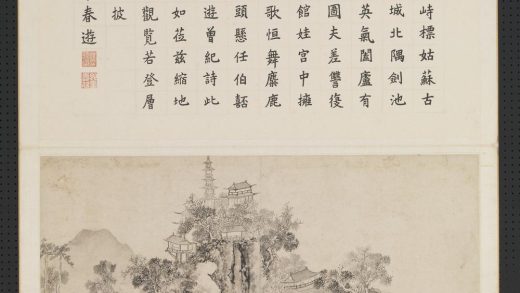 峙標姑蘇古
城北隅劍池
英氣闔廬有
圖夫差讐復
館娃宮中擁
歌恒舞麋鹿
頭懸任伯嚭
遊曾紀詩此
如莅茲縮地
觀覽若登層
披
春遊